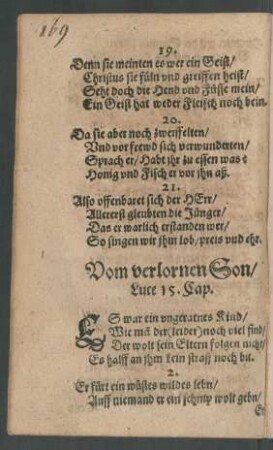 169
19.
Denn sie meinten es wer ein Geist/
Christus sie füln vnd greiffen heist/
Seht doch die Hend vnd Füsse mein/
Ein Geist hat weder Fleisch noch bein.
20.
Da sie aber noch zweiffelten/
Vnd vor frewd sich verwunderten/
Sprach er/ Habt jhr zu essen was?
Honig vnd Fisch er vor jhn aß.
21.
Also offenbaret sich der HErr/
Allererst gleubten die Jünger/
Das er warlich erstanden wer/
So singen wir jhm lob/ preis vnd ehr.
Vom verlornen Son/
Luce 15. Cap.
ES war ein vngeratnes Kind/
Wie mā der (leider) noch viel find/
Der wolt sein Eltern folgen nicht/
Es halff an jhm kein straff noch bit.
2.
Er fürt ein wüstes wildes lebn/
Auff niemand er ein schnip wolt gebn/